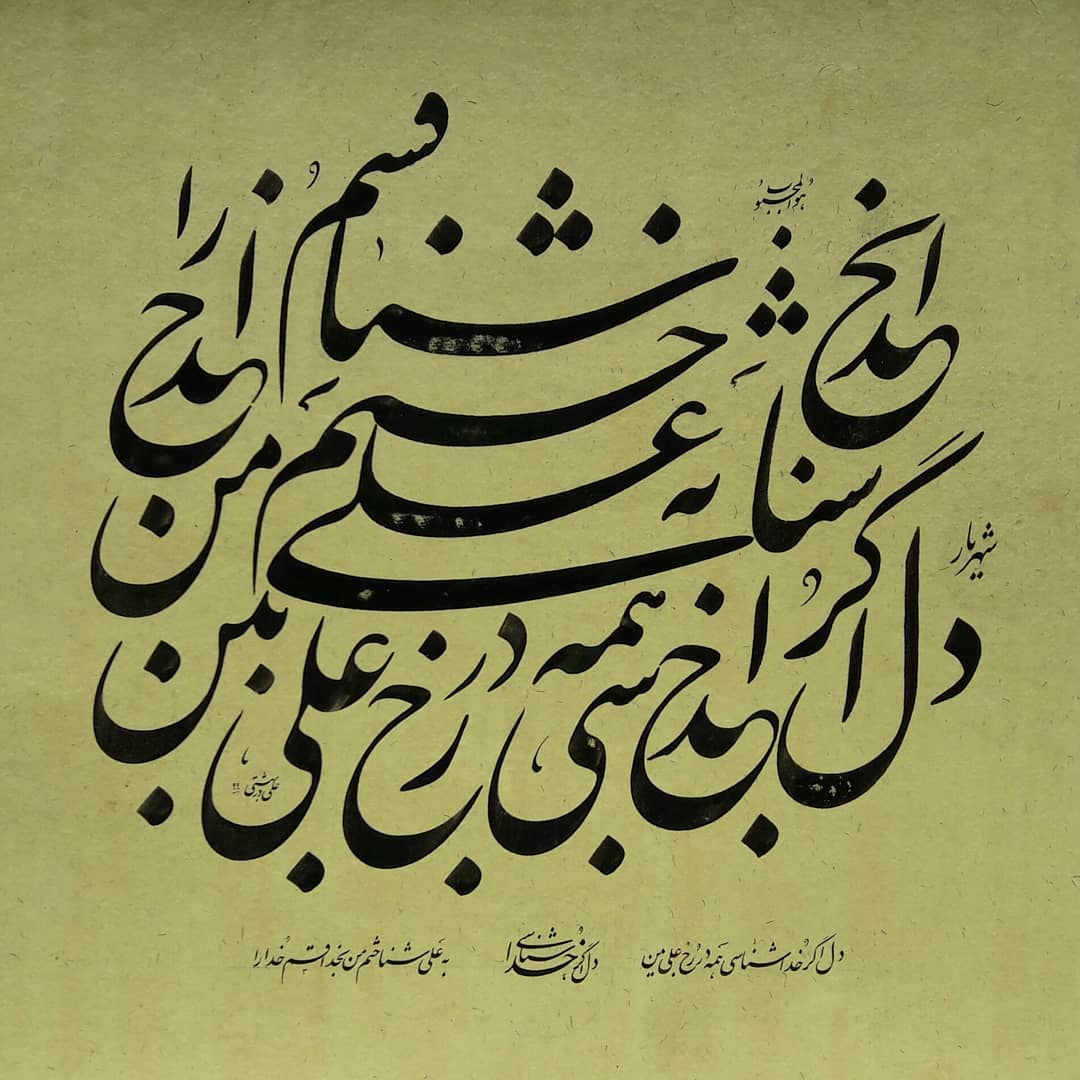 هوالمحبوب
دل اگر خداشناسی همه در رخ علی بین
به علی شناختم من بخدا قسم خدا را
شهریار
دل اگر خداشناسی همه در رخ علی بین
دل اگر خداشناسی
به علی شناختم من بخدا قسم خدا را